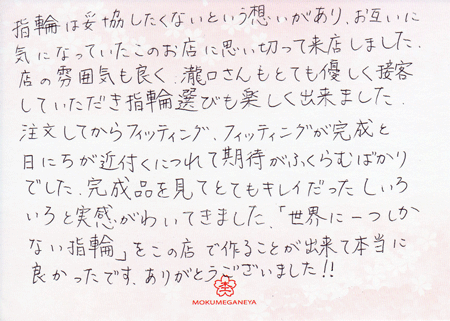 指輪は妥協したくないという想いがあり、お互いに
気になっていたこのお店に思い切って来店しました.
店の雰囲気も良く、瀧口さんもとても優しく接客
していただき指輪選びも楽しく出来ました.
注文してからフィッティング、フィッティングが完成と
日にちが近付くにつれて期待がふくらむばかり
でした.完成品を見てとてもキレイだったしいろ
いろと実感がわいてきました.「世界に一つしか
ない指輪」をこの店で作ることが出来て本当に
良かったです.ありがとうございました!!
MOKUMEGANEYA